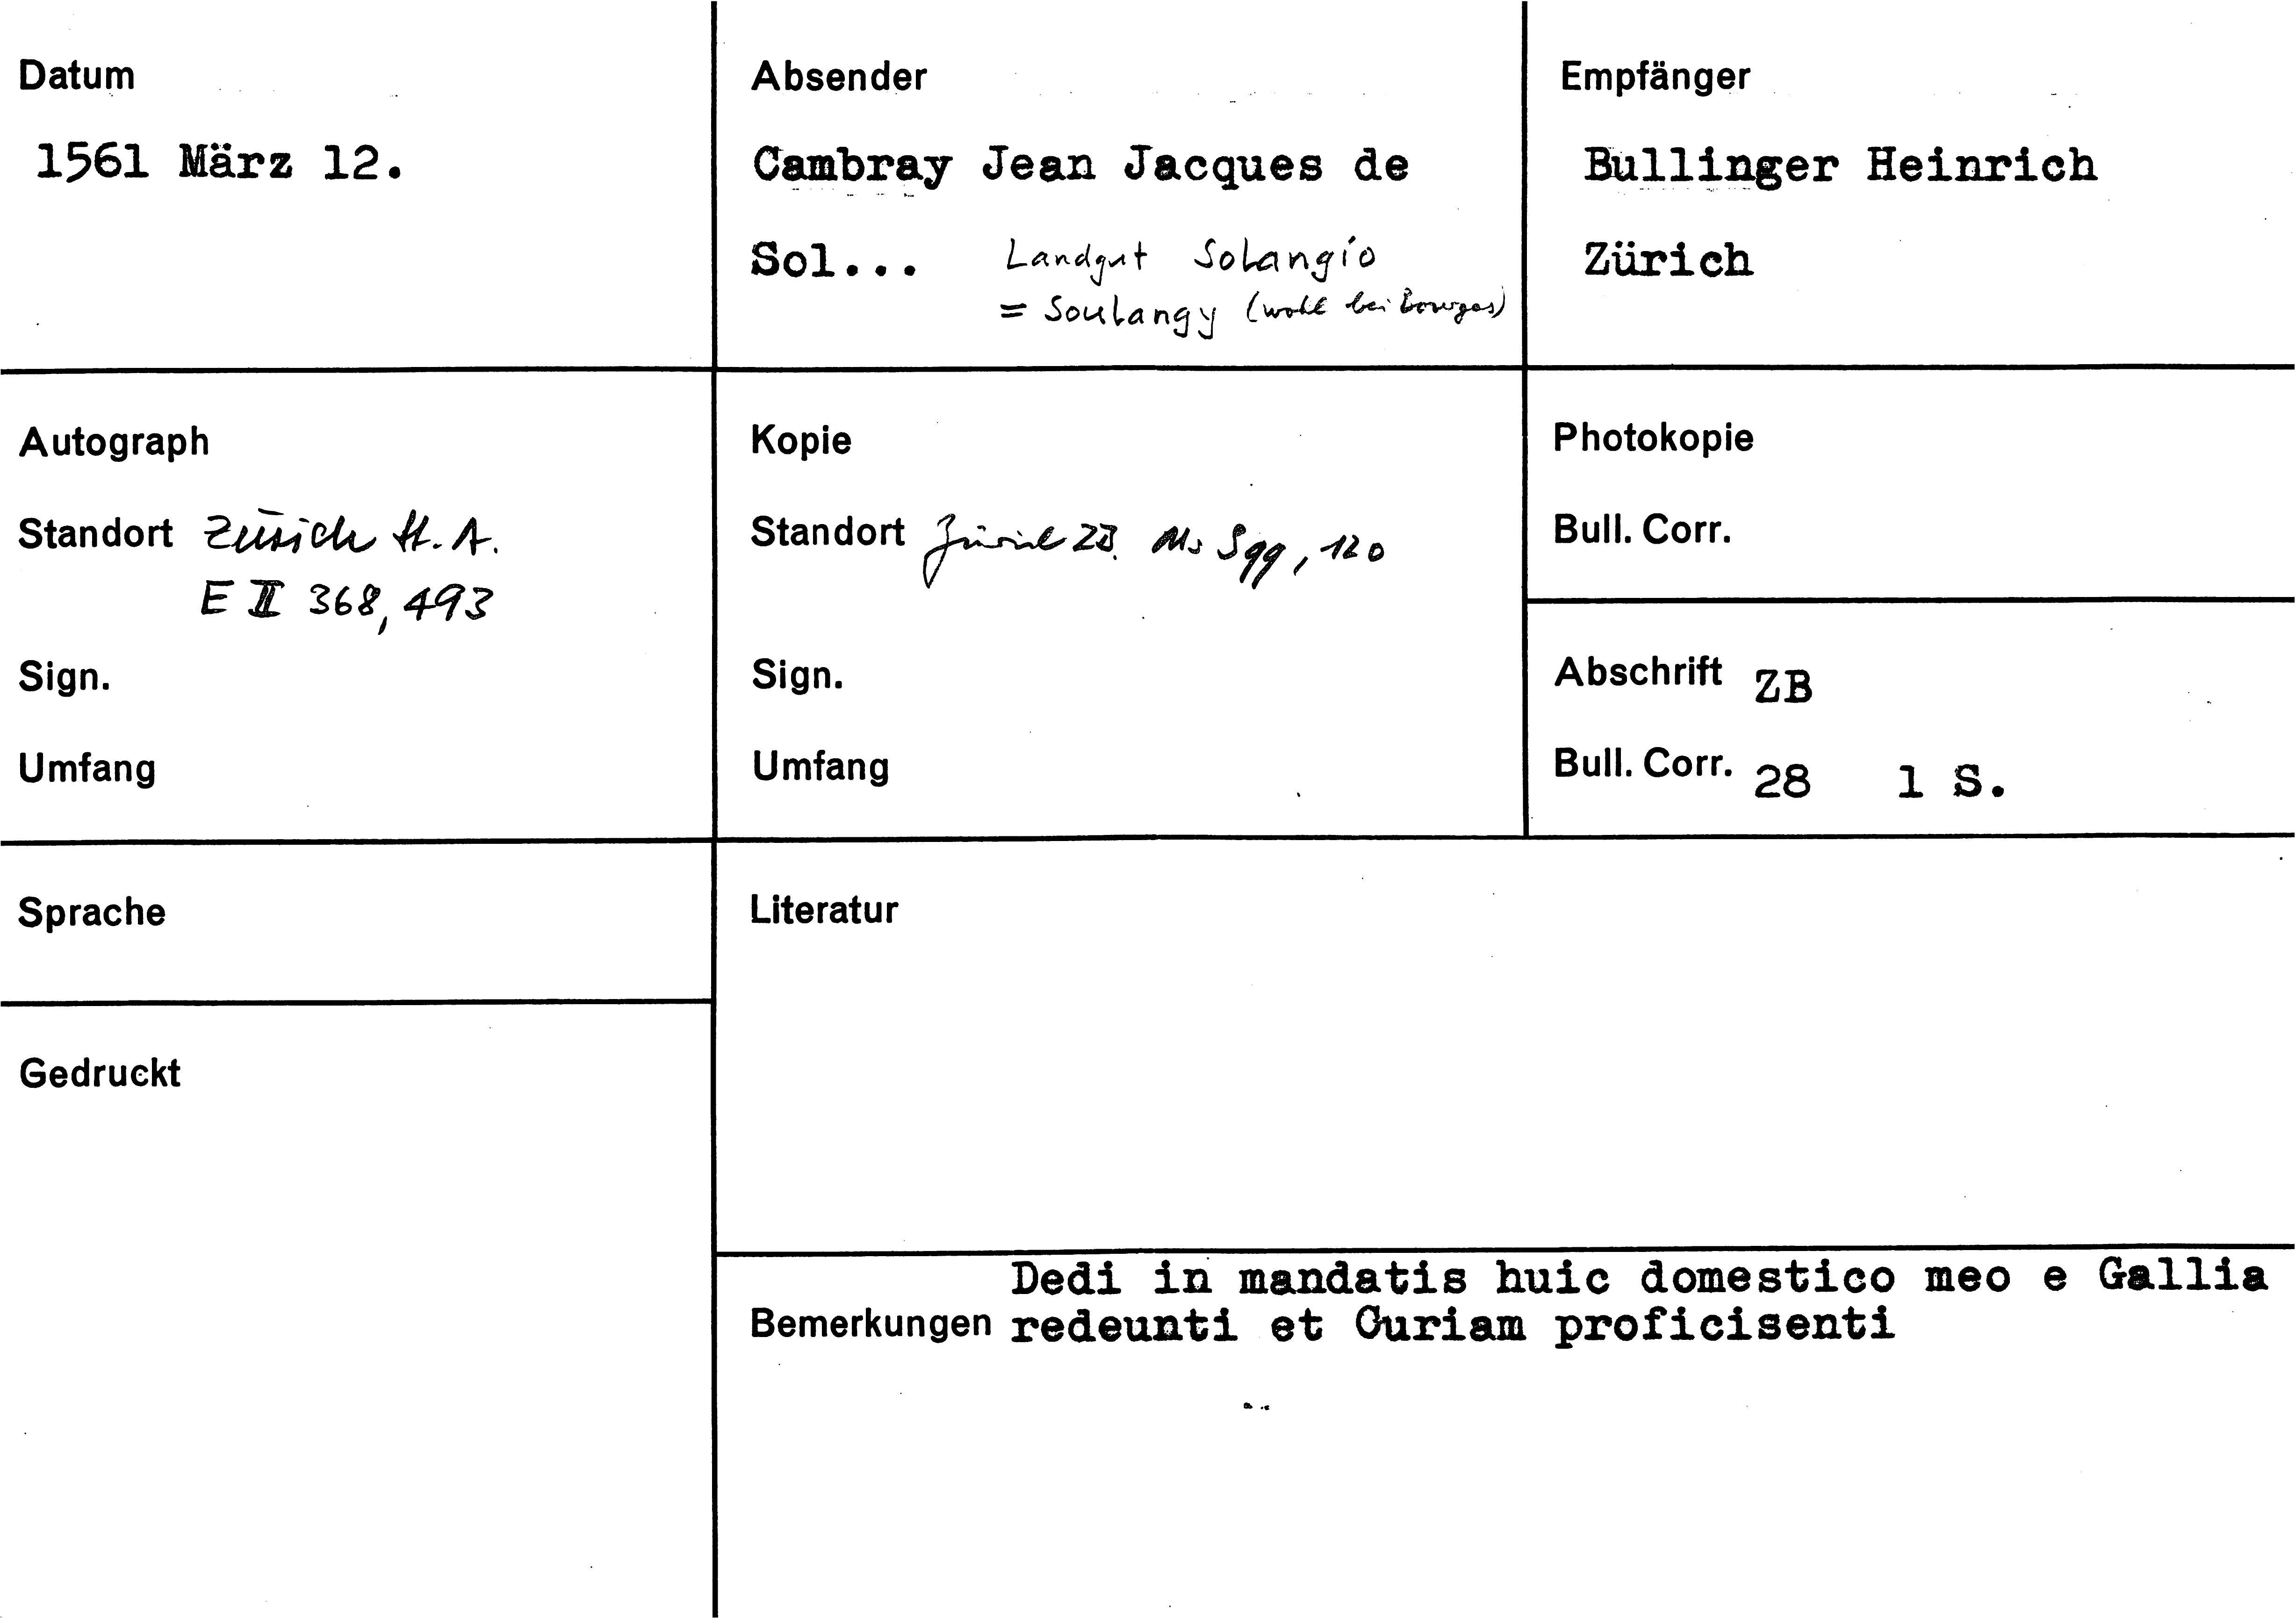 Datum
1561 März 12.
Absender
Cambray Jean Jacques de
Sol... Landgut Solangio
= Soulangy (wohl bei Bourges)
Empfänger
Bullinger Heinrich
Zürich
Autograph
Standort Zürich St. A.
E II 368, 493
Sign.
Umfang
Kopie
Standort Zürich ZB. Ms S 99, 120
Sign.
Umfang
Photokopie
Bull. Corr.
Abschrift ZB
Bull. Corr. 28 1 S.
Sprache
Gedruckt
Literatur
Dedi in mandatis huic domestico meo e Gallia
Bemerkungen redeunti et Curiam proficisenti